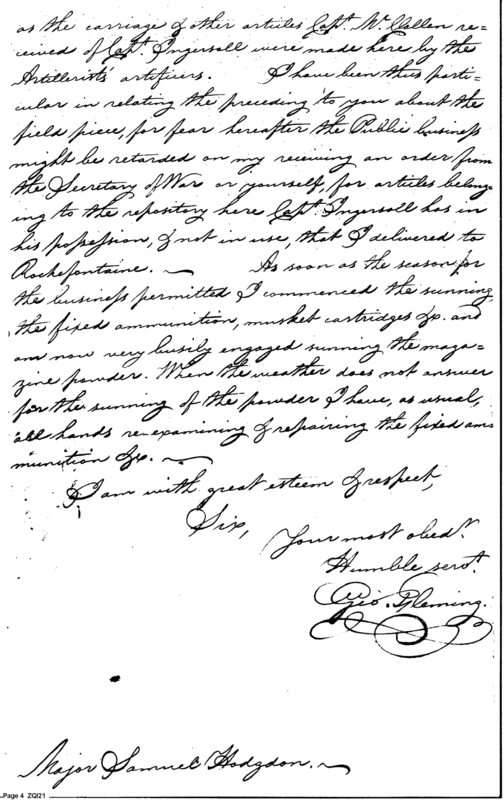 as the carriage & other articles Capt. McClallen re=
ceived of Capt. Ingersoll were made here by the
Artillerists artificers. I have been thus parti-
cular in relating the preceding to you about the
field piece, for fear hereafter the Public business
might be retarded on my receiving an order from
the Secretary of War or yourself, for articles belong
ing to the repository here Capt. Ingersoll has in
his possession, & not in use, that I delivered to
Rochefontaine. ~ As soon as the season for
the business permitted I commenced the sunning
the fixed ammunition, musket cartridges &c. and
am now very busily engaged sunning the maga-
zine powder. When the weather does not answer
for the sunning of the powder I have, as usual,
all hands re-examining & repairing the fixed am
munition &c. ~
I am with great esteem & respect,
Sir,
Your most obedt.
Humble servt.
Geo. Fleming.
Major Samuel Hodgdon. ~
Page 4 ZQI21